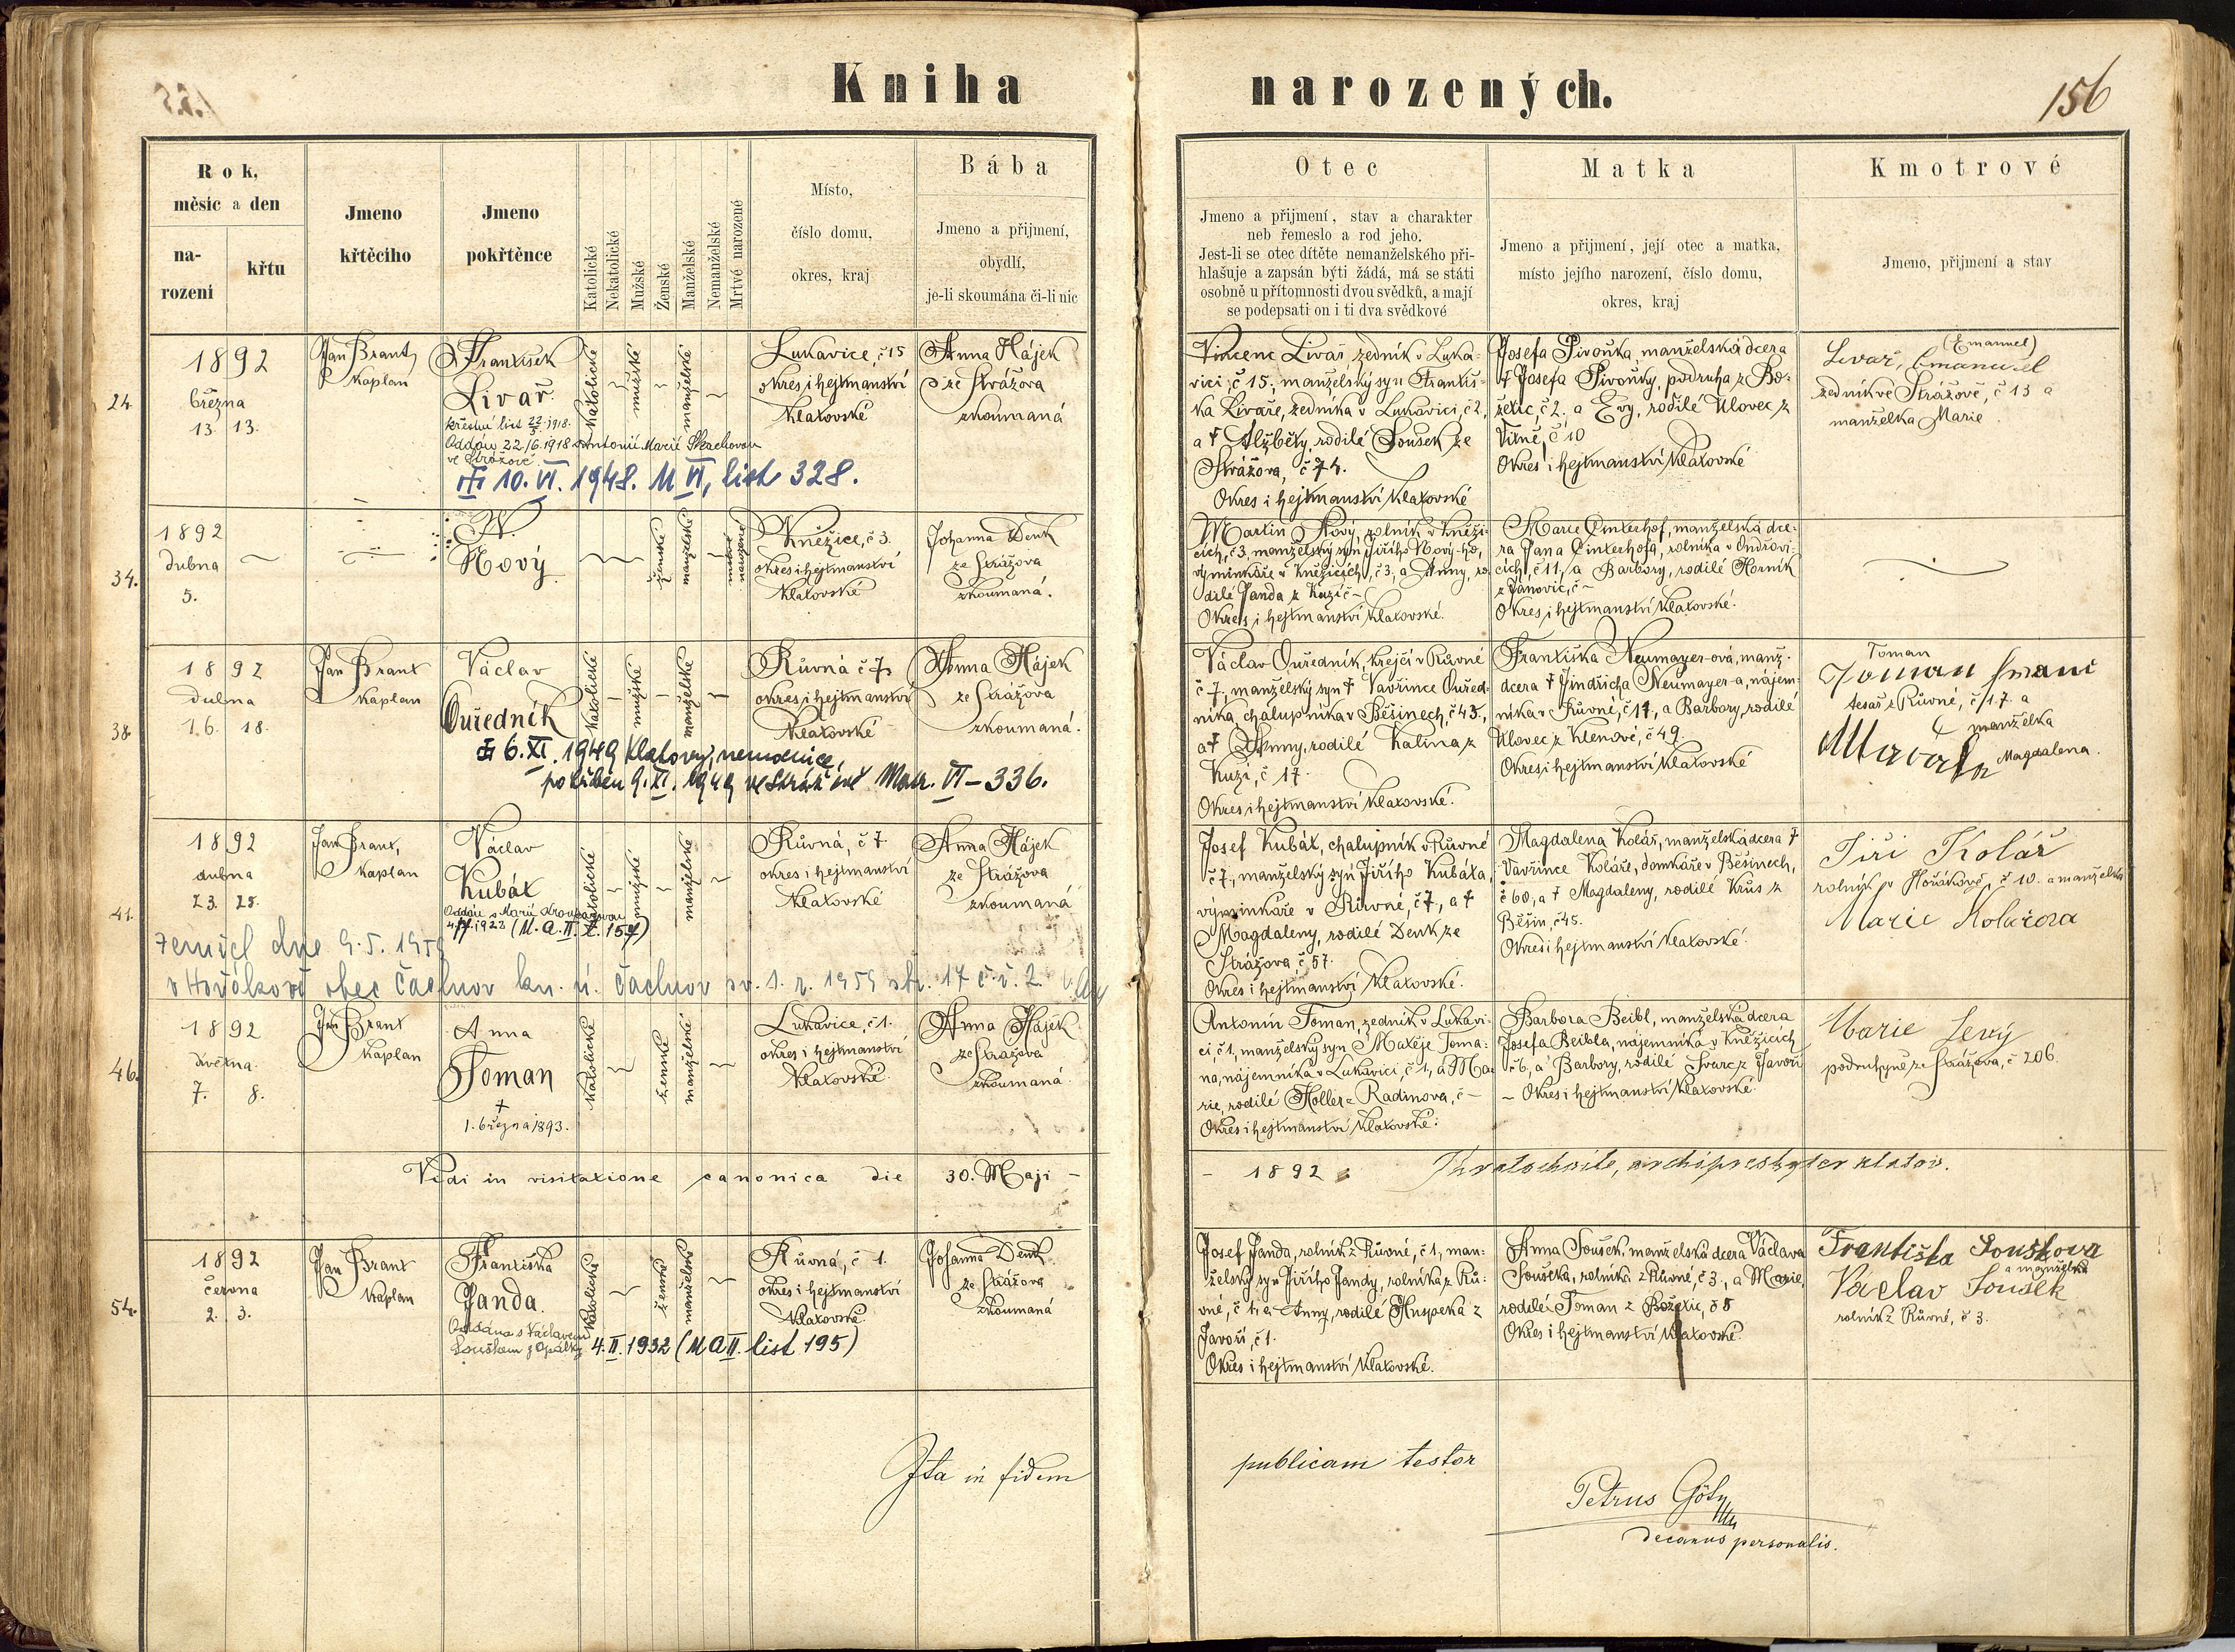 Kniha narozených.
156
Rok,
měsíc a den
na-
rození
křtu
Jmeno
křtěcího
Jmeno
pokřtěnce
Katolické
Nekatolické
Mužské
Ženské
Manželské
Nemanželské
Mrtvé narozené
Místo,
číslo domu,
okres, kraj
Bába
Jmeno a příjmení,
obydlí,
je-li skoumána či-li nic
Otec
Jmeno a přijmení, stav a charakter
neb řemeslo a rod jeho.
Jest-li se otec dítěte nemanželského při-
hlašuje a zapsán býti žádá, má se státi
osobně u přítomnosti dvou svědků, a mají
se podepsati on i ti dva svědkové
Matka
Jmeno a přijmení, její otec a matka,
místo jejího narození, číslo domu,
okres, kraj
Kmotrové
Jmeno, přijmení a stav
24.
1892
března
13. 13.
Jan Brant,
kaplan
František
Livař
křestní list 22/5. 1918.
Oddán 22/6. 1918 s Antonií Marií
ve Strážově
10. VI. 1948. M VI, list 328.
katolické
mužské
manželské
Lukavice, č 15
okres i hejtmanství
Klatovské
Anna Hájek
ze Strážova
zkoumaná
Vincenc Livař, zedník v Luka-
vici, č 15, manželský syn Františ-
ka Livaře, zedníka v Lukavici, č 2,
a † Alžběty, rodilé Soušek ze
Strážova, č 74.
Okres i hejtmanství Klatovské
Josefa Pivoňka, manželská dcera
† Josefa Pivoňky, podruha z Bo-
žetic, č 2. a Evy, rodilé Klovec z
Vítně, č 10
Okres i hejtmanství Klatovské
(Emanuel)
Livař, Emanuel
zedník ve Strážově, č 13 a
manželka Marie
34.
1892
dubna
5.
N.
Nový
ženské
manželské
mrtvě
narozené
Kněžice, č 3.
okres i hejtmanství
Klatovské
Johanna Denk
ze Strážova
zkoumaná.
Martin Nový, rolník v Kněži-
cích, č 3, manželský syn Jiřího Nový-ho,
výminkáře v Kněžicích, č 3, a Anny, ro-
dilé Janda z Kuzí č ~
Okres i hejtmanství Klatovské.
Marie Cinterhof, manželská dce-
ra Jana Cinterhofa, rolníka v Ondřovi-
cích, č 11, a Barbory, rodilé Horník
z Janovic, č ~
Okres i hejtmanství Klatovské.
38.
1892
dubna
16. 18.
Jan Brant
kaplan
Václav
Ouředník
6. XI. 1949 Klatovy, nemocnice,
pohřben 9. XI. 1949 ve Strážově Matr. VI – 336.
katolické
mužské
manželské
Růvná č 7,
okres i hejtmanství
Klatovské
Anna Hájek
ze Strážova
zkoumaná.
Václav Ouředník, krejčí v Růvné
č 7, manželský syn † Vavřince Ouřed-
níka, chalupníka v Běšinech, č 43,
a † Anny, rodilé Kalina z
Kuzí, č 17.
Okres i hejtmanství Klatovské.
Františka Neumayer-ová, manž.
dcera † Jindřicha Neumayer-a, nájem-
níka v Růvné, č 17, a Barbory, rodilé
Klovec z Klenové, č 49.
Okres i hejtmanství Klatovské
Toman
Toman
tesař z Růvné, č 17. a
manželka
Magdalena.
41.
1892
dubna
23. 25.
Jan Brant,
kaplan
Václav
Kubát
Oddán s Marií
1928 (M. O. II. l. 157)
Zemřel dne 9. 5. 1959
v Hořákově obec Čachrov kn. ú. Čachrov sv. 1. r. 1959 str. 17 č. ř. 2.
katolické
mužské
manželské
Růvná, č 7
okres i hejtmanství
Klatovské
Anna Hájek
ze Strážova
zkoumaná
Josef Kubát, chalupník v Růvné
č 7, manželský syn Jiřího Kubáta,
výminkáře v Růvné, č 7, a †
Magdaleny, rodilé Denk ze
Strážova, č 57.
Okres i hejtmanství Klatovské.
Magdalena Kolář, manželská dcera †
Vavřince Koláře, domkáře v Běšinech,
č 60, a † Magdaleny, rodilé Krůs z
Běšin, č 45.
Okres i hejtmanství Klatovské.
Jiří Kolář
rolník v Hořákově, č 10. a manželka
Marie Kolářova
46.
1892
května
7. 8.
Jan Brant
kaplan
Anna
Toman
†
1. března 1893.
katolické
ženské
manželské
Lukavice, č 1.
okres i hejtmanství
Klatovské
Anna Hájek
ze Strážova
zkoumaná.
Antonín Toman, zedník v Lukavi-
ci, č 1, manželský syn Matěje Toma-
na, nájemníka v Lukavici, č 1, a Ma-
rie, rodilé Holler z Radinova, č –
Okres i hejtmanství Klatovské.
Barbora Beibl, manželská dcera
Josefa Beibla, nájemníka v Kněžicích
č 6, a Barbory, rodilé Švarc z Javoří
~ Okres i hejtmanství Klatovské.
Marie Levý
podruhyně ze Strážova, č 206
Vidi in visitatione canonica die 30. Maji – – 1892
archipresbyter klatov.
54.
1892
června
2. 3.
Jan Brant
kaplan
Františka
Janda.
Oddána s Václavem
Louškem z Opálky 4. II. 1932 (M O II. list 195)
katolické
ženské
manželské
Růvná, č 1.
okres i hejtmanství
Klatovské
Johanna Denk
ze Strážova
zkoumaná
Josef Janda, rolník z Růvné, č 1, man-
želský syn Jiřího Jandy, rolníka z Rů-
vné, č 1, a Anny, rodilé Huspeka z
Javoří, č 1.
Okres i hejtmanství Klatovské.
Anna Soušek, manželská dcera Václava
Souška, rolníka z Růvné, č 3, a Marie,
rodilé Toman z Božetic, č 8
Okres i hejtmanství Klatovské
Františka Souškova
a manžel
Václav Soušek
rolník z Růvné, č 3.
Ita in fidem publicam testor
Petrus
decanus personalis.